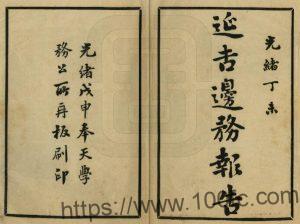 光緒丁未
延吉邊務報告
光緒戊申奉天學
務公所再板刷印